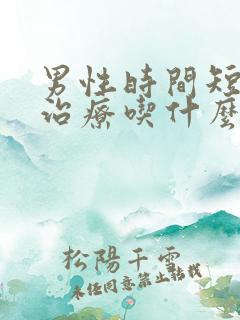 男性時間短
治療喫什麽
松陽千雪
未经同意禁止转载